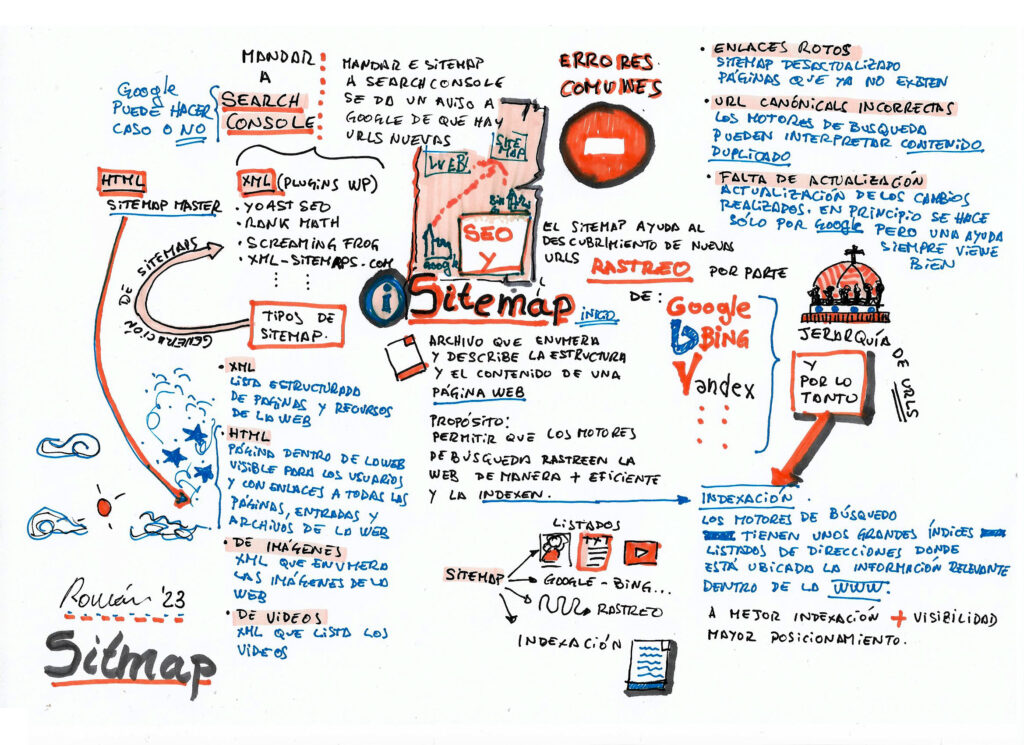 MANDAR
A
SEARCH
CONSOLE
Google
PUEDE HACER
CASO O NO
MANDAR E SITEMAP
A SEARCH CONSOLE
SE DA UN AVISO A
GOOGLE DE QUE HAY
URLS NUEVAS
ERRORES
COMUNES
· ENLACES ROTOS
SITEMAP DESACTUALIZADO
PÁGINAS QUE YA NO EXISTEN
· URL CANÓNICALS INCORRECTAS
LOS MOTORES DE BUSQUEDA
PUEDEN INTERPRETAR CONTENIDO
DUPLICADO
· FALTA DE ACTUALIZACIÓN
ACTUALIZACIÓN DE LOS CAMBIOS
REALIZADOS. EN PRINCIPIO SE HACE
SÓLO POR Google PERO UNA AYUDA
SIEMPRE VIENE
BIEN
HTML
SITEMAP MASTER
XML (PLUGINS WP)
· YOAST SEO
· RANK MATH
· SCREAMING FROG
· XML-SITEMAPS.COM
GENERACIÓN DE SITEMAPS
TIPOS DE
SITEMAP.
WEB!
SITE
MAP
Bing
Google
SEO
Y
Sitemáp
INICIO
EL SITEMAP AYUDA AL
DESCUBRIMIENTO DE NUEVAS
URLS RASTREO POR PARTE
DE:
Google
BING
Yandex
JERARQUÍA
DE URLS
Y
POR LO
TANTO
ARCHIVO QUE ENUMERA
Y DESCRIBE LA ESTRUCTURA
Y EL CONTENIDO DE UNA
PÁGINA WEB
PROPÓSITO:
PERMITIR QUE LOS MOTORES
DE BÚSQUEDA RASTREEN LA
WEB DE MANERA + EFICIENTE
Y LA INDEXEN.
· XML
LISTA ESTRUCTURADA
DE PAGINAS Y RECURSOS
DE LA WEB
· HTML
PÁGINA DENTRO DE LA WEB
VISIBLE PARA LOS USUARIOS
Y CON ENLACES A TODAS LAS
PÁGINAS, ENTRADAS Y
ARCHIVOS DE LA WEB
· DE IMÁGENES
XML QUE ENUMERA
LAS IMÁGENES DE LA
WEB
· DE VIDEOS
XML QUE LISTA LOS
VIDEOS
INDEXACIÓN.
LOS MOTORES DE BÚSQUEDO
TIENEN UNOS GRANDES ÍNDICES
LISTADOS DE DIRECCIONES DONDE
ESTÁ UBICADO LA INFORMACIÓN RELEVANTE
DENTRO DE LA WWW.
A MEJOR INDEXACIÓN + VISIBILIDAD
MAYOR POSICIONAMIENTO.
LISTADOS
TXT
SITEMAP
GOOGLE - BING...
RASTREO
INDEXACIÓN
Román '23
Sitmap